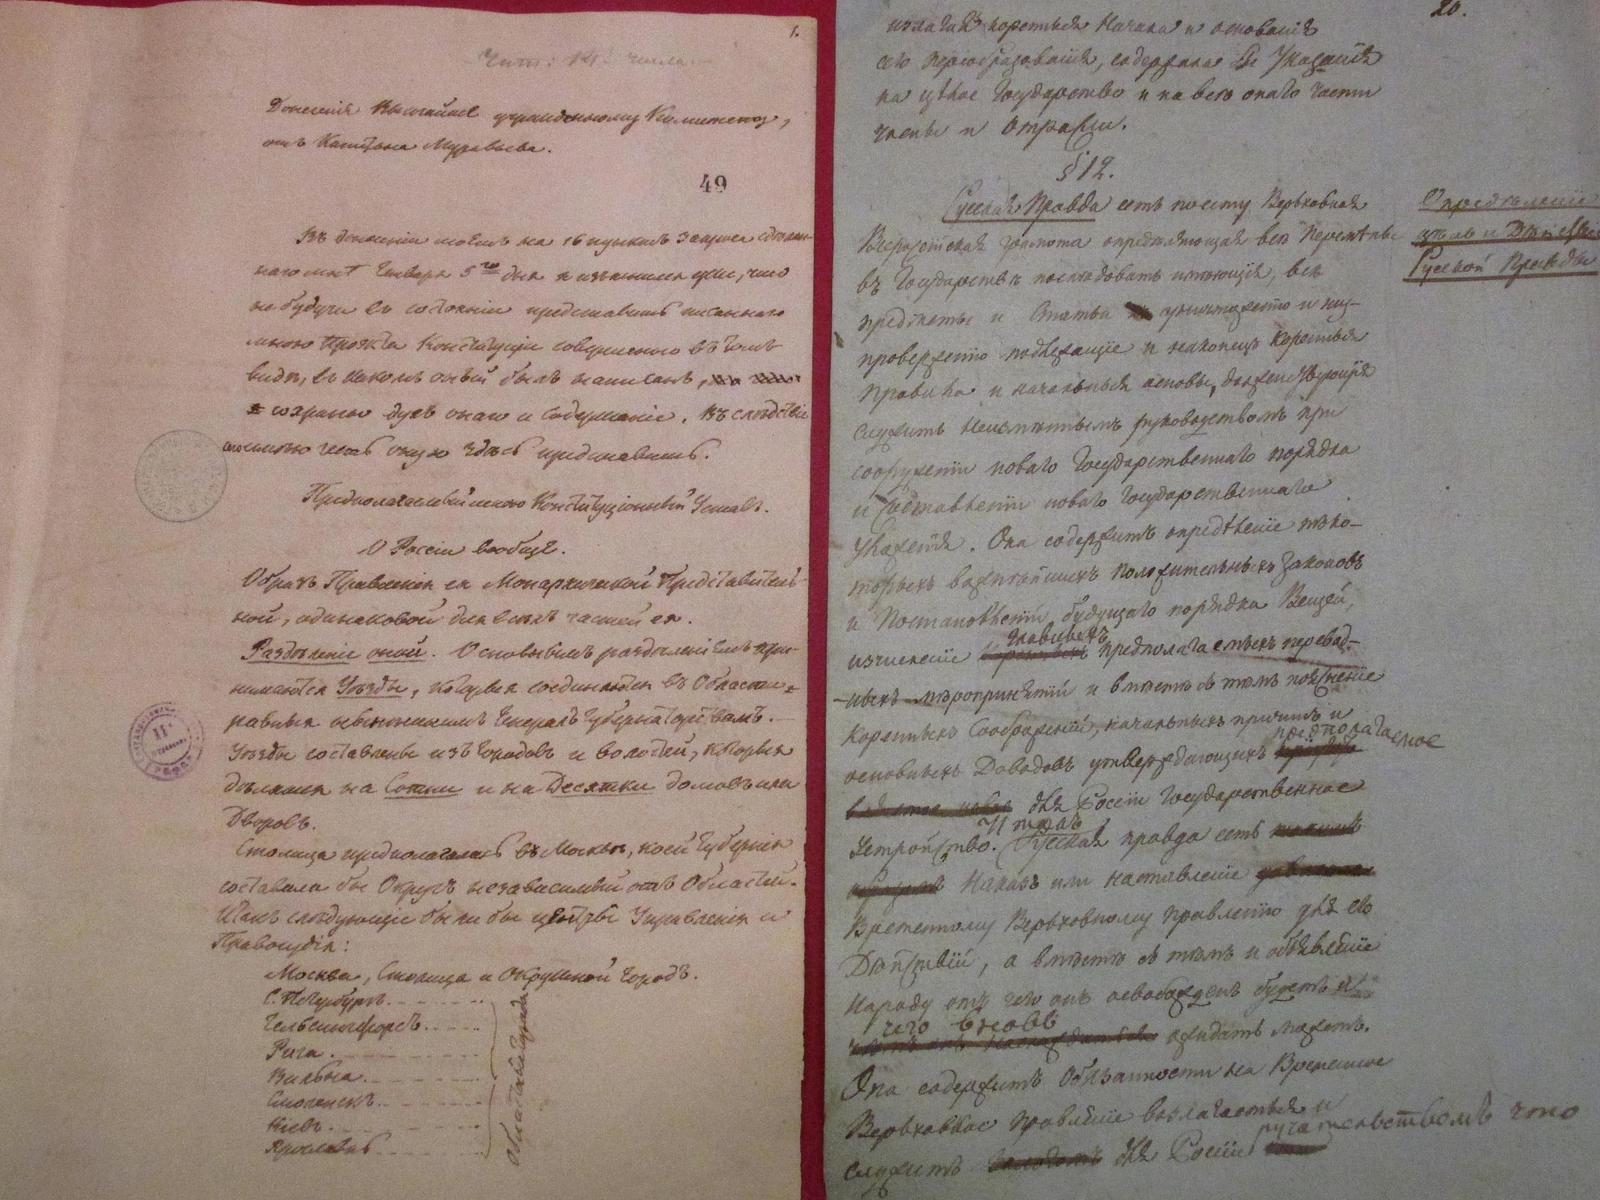 1.
Чит: 14 числа.
Донесенія Высочайше учрежденному Комитету,
отъ Капитана Муравьева.
49
Въ донесеніи моемъ на 16 пунктовъ запроса сдѣлан-
наго мнѣ Генваря 5го дня я изъяснилъ уже, что
не будучи въ состояніи представить писаннаго
мною Проэкта Конституціи совершенно въ томъ
видѣ, въ какомъ оный былъ написанъ,
сохраню духъ онаго и содержаніе. Въ слѣдствіе
честь оную здѣсь представить.
Предполагаемый мною Конституціонный Уставъ.
О Россіи вообще.
Образъ Правленія ея Монархической Представитель-
ной, одинаковой для всѣхъ частей ея.
Раздѣленіе оной. Основнымъ раздѣленіемъ при-
нимаются Уѣзды, которые соединяются въ Области
равныя нынѣшнимъ Генералъ Губернаторствамъ.
Уѣзды составлены изъ Городовъ и волостей, которыя
дѣлятся на Сотни и на Десятки домовъ или
Дворовъ.
Столица предполагалась въ Москвѣ, коей Губернія
составила бы Округъ независимый отъ Областей.
Итакъ слѣдующіе были бы центры Управленія и
Правосудія:
Москва, Столица и Окружной Городъ.
С. Петербургъ
Гельсингфорсъ
Рига
Вильна
Смоленскъ
Кіевъ
Ярославль
Областные города
20.
излагая коренныя Начала и основанія
сего преобразованія, содержала бы Указанія
на цѣлое Государство и на всѣ онаго части
члены и Отрасли.
§ 12.
Русская Правда есть по сему Верьховная
Всероссійская грамота опредѣляющая всѣ перемѣны
въ Государствѣ послѣдовать имѣющія, всѣ
предметы и Статьи уничтоженію и ниc-
проверженію подлежащіе и наконецъ коренныя
правила и начальныя основы, долженствующія
служить неизмѣннымъ руководствомъ при
сооруженіи новаго Государственнаго порядка
и Составленіи новаго Государственнаго
Уложенія. Она содержитъ опредѣленіе нѣко-
торыхъ важнѣйшихъ положительныхъ законовъ
и Постановленій будущаго порядка Вещей,
главныхъ
изчисленіе предполагаемыхъ перевод-
ныхъ мѣропринятій и вмѣстѣ съ тѣмъ поясненіе
Коренныхъ Соображеній, начальныхъ причинъ и
предполагаемое
основныхъ Доводовъ утверждающихъ
для Россіи Государственное
Итакъ
Устройство. Русская правда есть
Наказъ или наставленіе
Временному Верьховному правленію для его
Дѣйствій, а вмѣстѣ съ тѣмъ и объявленіе
народу отъ чего онъ освобожденъ будетъ и
чего вновь
ожидать можетъ.
Она содержитъ Обязанности на Временное
Верьховное правленіе возлагаемыя и
ручательствомъ что
служитъ для Россіи
Опредѣленіе
цѣли и Дѣйствія
Русской Правды